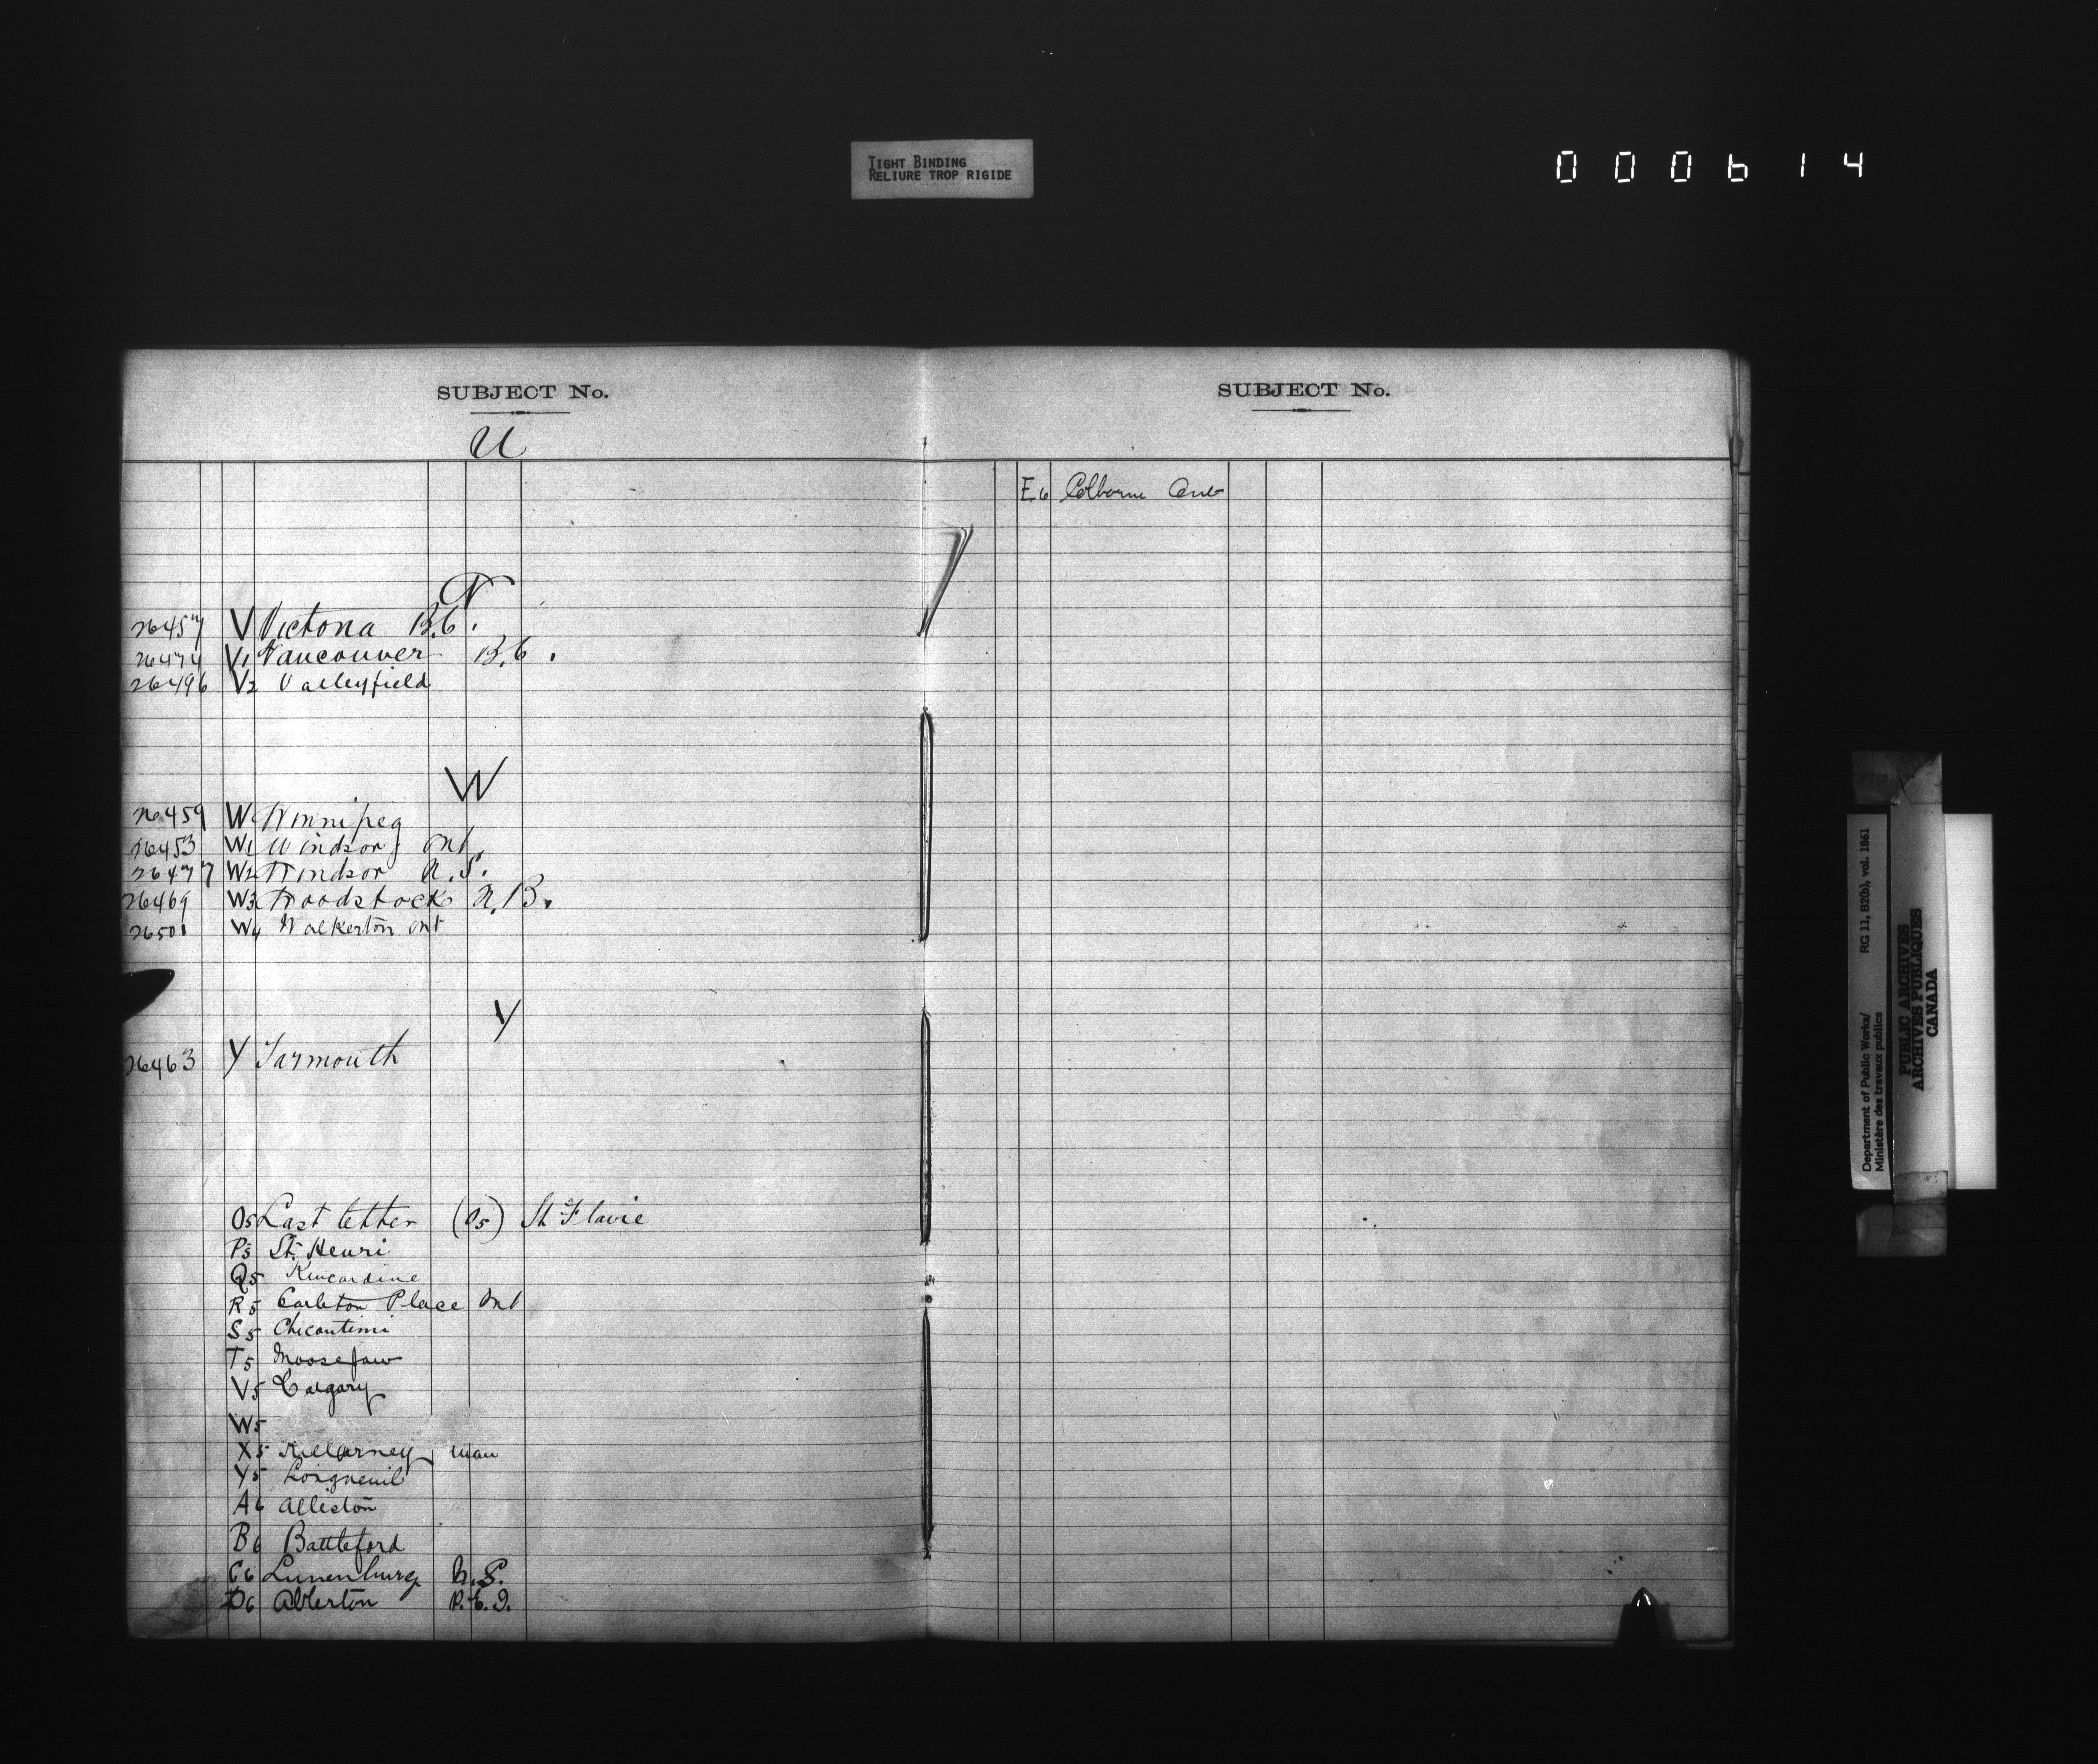 TIGHT BINDING
RELIURE TROP RIGIDE
000614
SUBJECT No.
U
V
26457 V Victoria B.C.
26474 V1 Vancouver B.C.
26496 V2 Valleyfield
W
26459 W Winnipeg
26453 W1 Windsor, Ont.
26477 W2 Windsor N.S.
26469 W3 Woodstock N.B.
26501 W4 Walkerton Ont
Y
26463 Y Yarmouth
O5 Last letter (O5) St Flavie
P5 St. Henri
Q5 Kincardine
R5 Carleton Place Ont
S5 Chicoutimi
T5 Moosejaw
V5 Calgary
W5
X5 Killarney, Man
Y5 Longueuil
A6 Alliston
B6 Battleford
C6 Lunenburg N.S.
D6 Alberton P.E.I.
SUBJECT No.
E6 Colborne
Department of Public Works/ RG 11, B2(b), vol. 1861
Ministère des travaux publics
PUBLIC ARCHIVES
ARCHIVES PUBLIQUES
CANADA